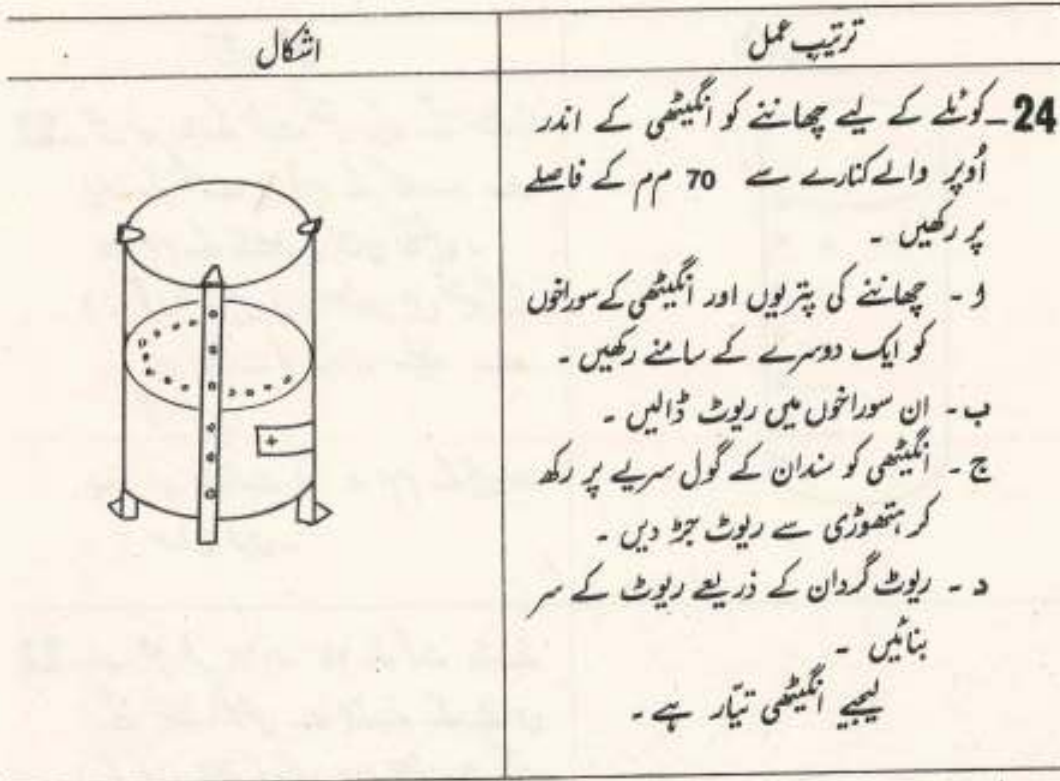 ترتیب عمل
اشکال
24_ کوئلے کے لیے چھاننے کو انگیٹھی کے اندر
اُوپر والے کنارے سے 70 مم کے فاصلے
پر رکھیں ۔
ا ۔ چھاننے کی پتریوں اور انگیٹھی کے سوراخوں
کو ایک دوسرے کے سامنے رکھیں ۔
ب ۔ ان سوراخوں میں ریوٹ ڈالیں ۔
ج ۔ انگیٹھی کو سندان کے گول سریے پر رکھ
کر ہتھوڑی سے ریوٹ جڑ دیں ۔
د ۔ ریوٹ گردان کے ذریعے ریوٹ کے سر
بنائیں ۔
لیجیے انگیٹھی تیّار ہے ۔